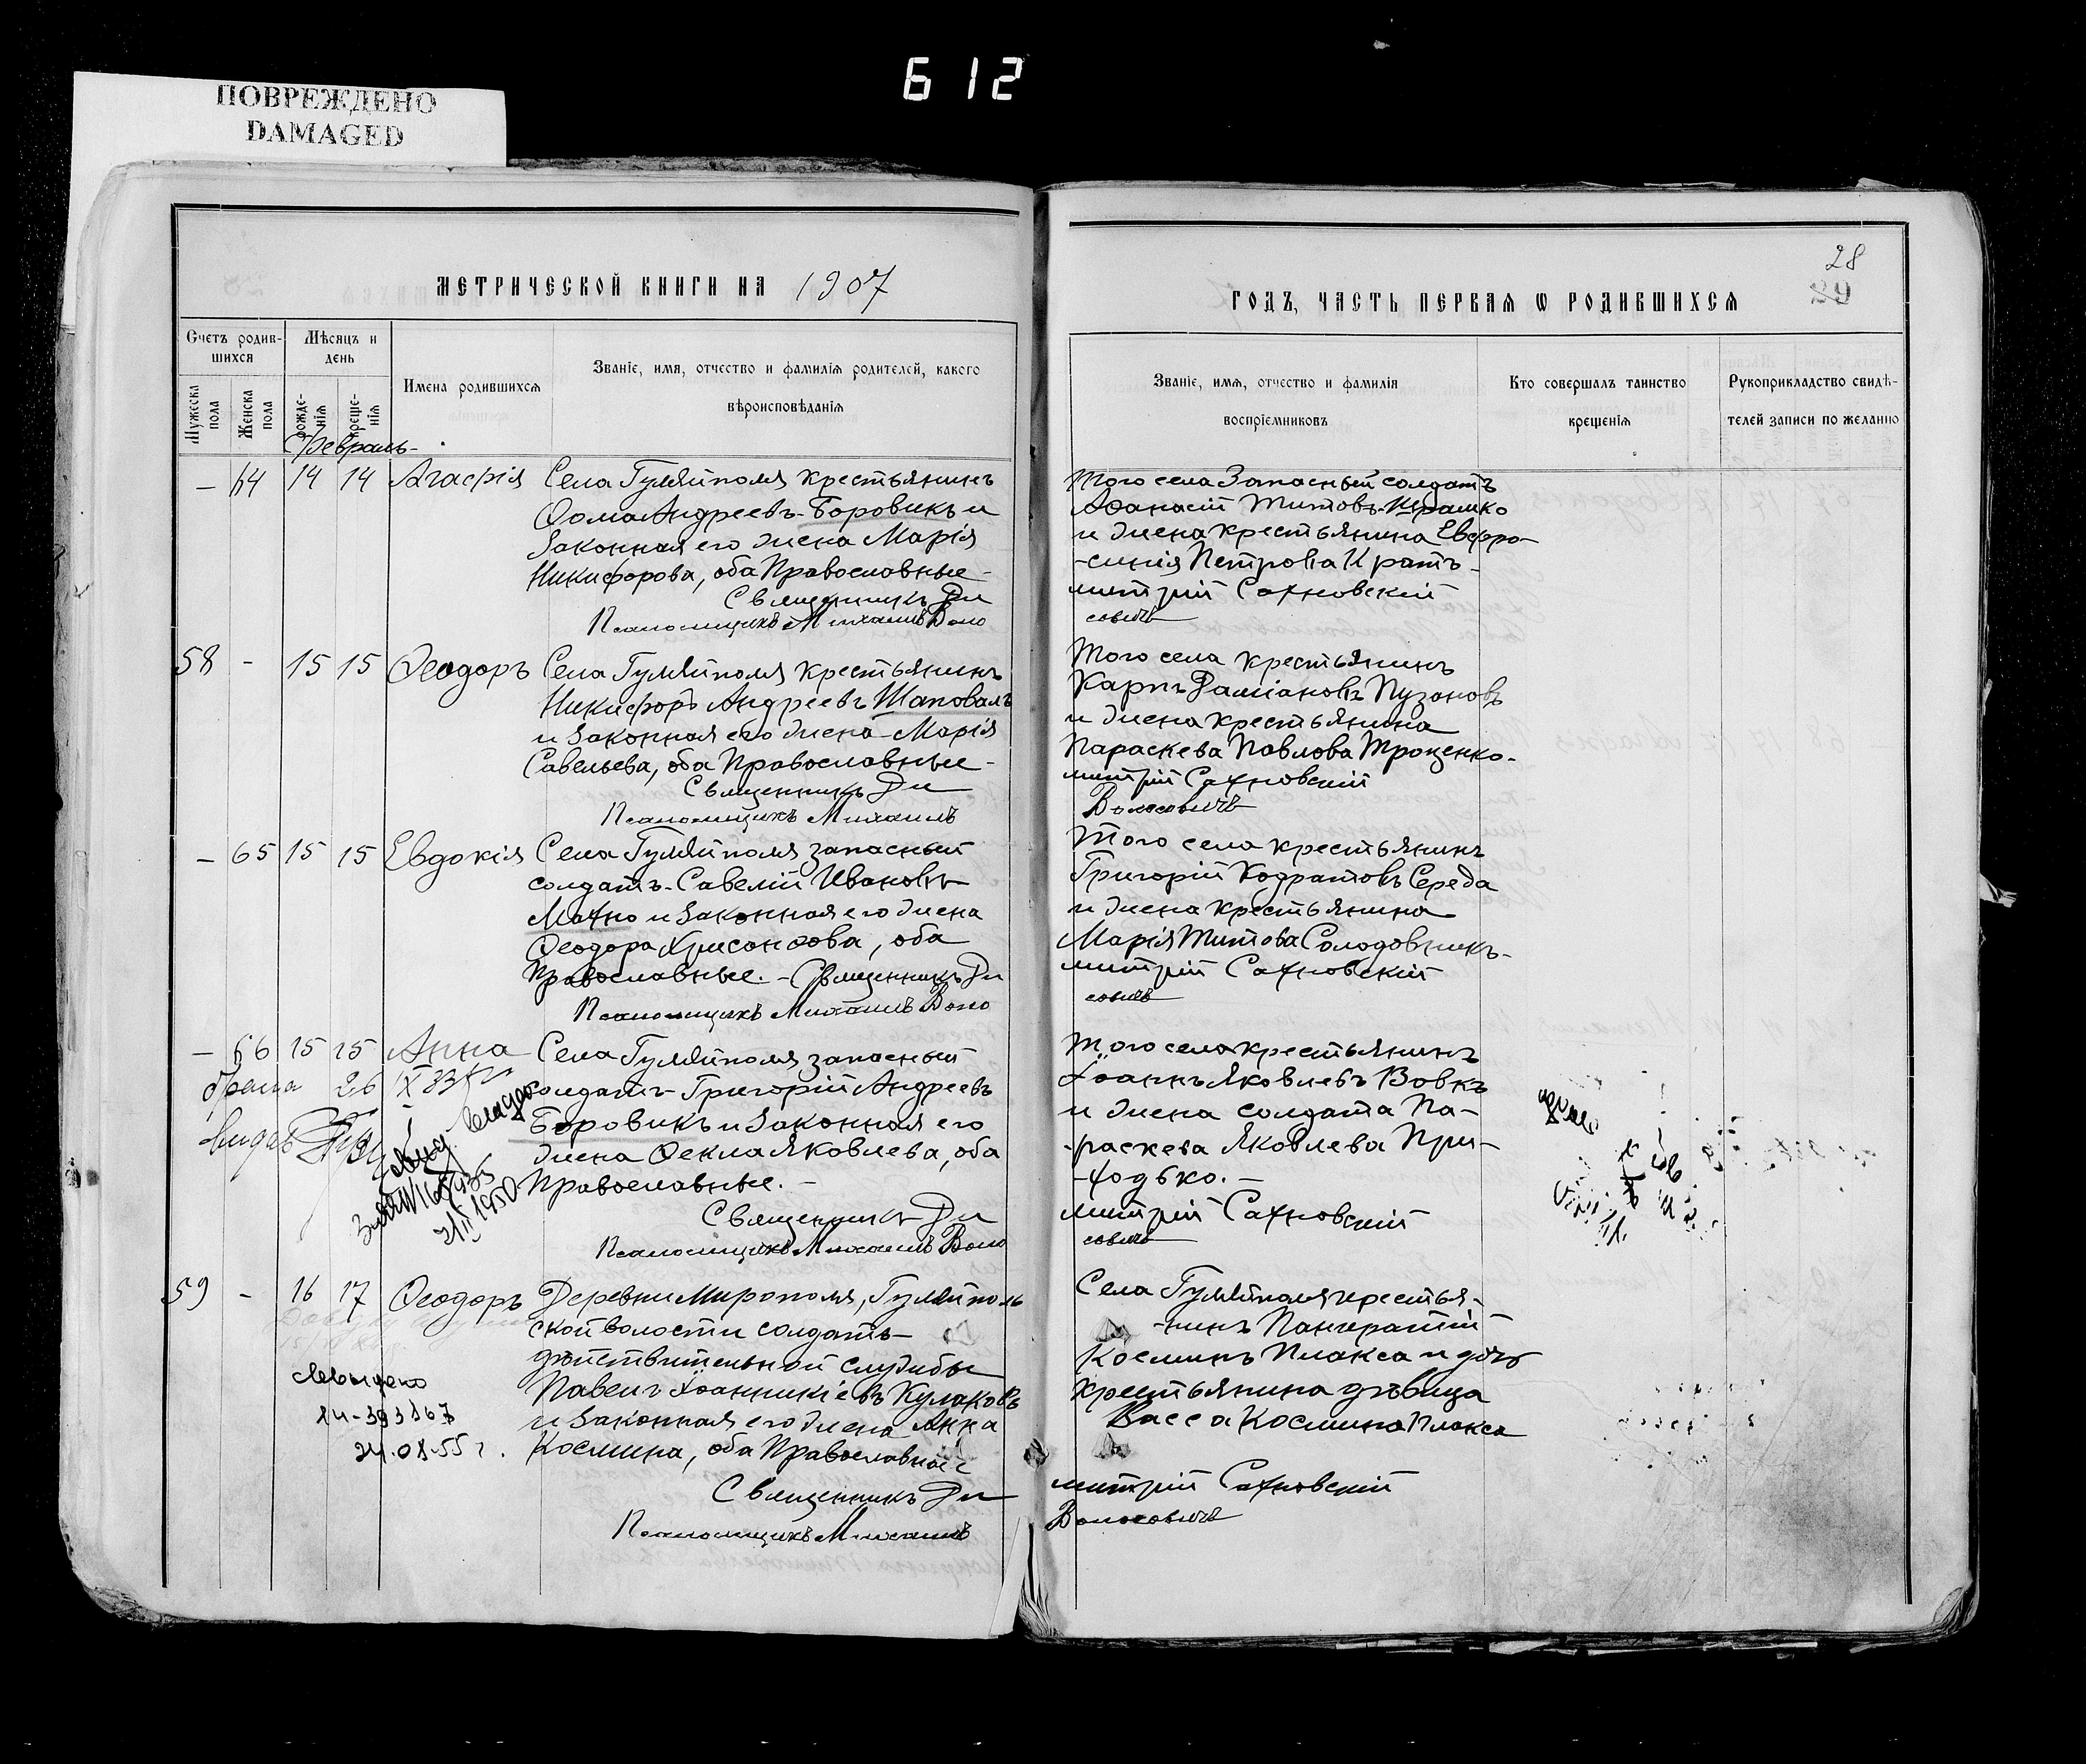 612
ПОВРЕЖДЕНО
DAMAGED
МЕТРИЧЕСКОЙ КНИГИ НА 1907
Счетъ родив-
шихся
Мѣсяцъ и
день
Имена родившихся
Званіе, имя, отчество и фамилія родителей, какого
вѣроисповѣданія
Мужеска
пола
Женска
пола
рожде-
нія
креще-
нія
Февраль
— 64 14 14 Агафія Села Гуляйполя крестьянинъ
Ѳома Андреевъ Боровикъ и
законная его жена Марія
Никифорова, оба Православные
Священникъ Ди
Псаломщикъ Михаилъ Воло
58 - 15 15 Ѳеодоръ Села Гуляйполя крестьянинъ
Никифоръ Андреевъ Шаповалъ
и законная его жена Марія
Савельева, оба Православные
Священникъ Ди
Псаломщикъ Михаилъ
— 65 15 15 Евдокія Села Гуляйполя запасный
солдатъ Савелій Ивановъ
Махно и законная его жена
Ѳеодора Хрисанѳова, оба
Православные. - Священникъ Ди
Псаломщикъ Михаилъ Воло
— 66 15 15 Анна Села Гуляйполя запасный
солдатъ Григорій Андреевъ
Боровикъ и законная его
жена Ѳекла Яковлева, оба
Православные. —
Священникъ Ди
Псаломщикъ Михаилъ Воло
брака 26
21/II 1950
59 - 16 17 Ѳеодоръ Деревни Мирополя, Гуляйполь
ской волости солдатъ
дѣйствительной службы
Павелъ Іоанникіевъ Кулаковъ
и законная его жена Анна
Космина, оба Православные
Священникъ Ди
Псаломщикъ Михаилъ
24.08.55 г.
28
29
ГОДЪ, ЧАСТЬ ПЕРВАЯ Ѡ РОДИВШИХСЯ
Званіе, имя, отчество и фамилія
воспріемниковъ
Кто совершалъ таинство
крещенія
Рукоприкладство свидѣ-
телей записи по желанію
Того села Запасный солдатъ
Аѳанасій Титовъ
и жена крестьянина Евфро-
-синія Петрова Кратъ
митрій Сахновскій
совичъ
Того села крестьянинъ
Карпъ Даміановъ Пузановъ
и жена крестьянина
Параскева Павлова Троценко.
митрій Сахновскій
Волосовичъ
Того села крестьянинъ
Григорій Кодратовъ Середа
и жена крестьянина
Марія Титова Солодовникъ
митрій Сахновскій
совичъ
Того села крестьянинъ
Іоаннъ Яковлевъ Вовкъ
и жена солдата Па-
-раскева Яковлева При-
-ходько. —
митрій Сахновскій
совичъ
Села Гуляйполя крестья-
-нинъ Панкратій
Косминъ Плакса и дочь
крестьянина дѣвица
Васса Космина Плакса
митрій Сахновскій
Волосовичъ